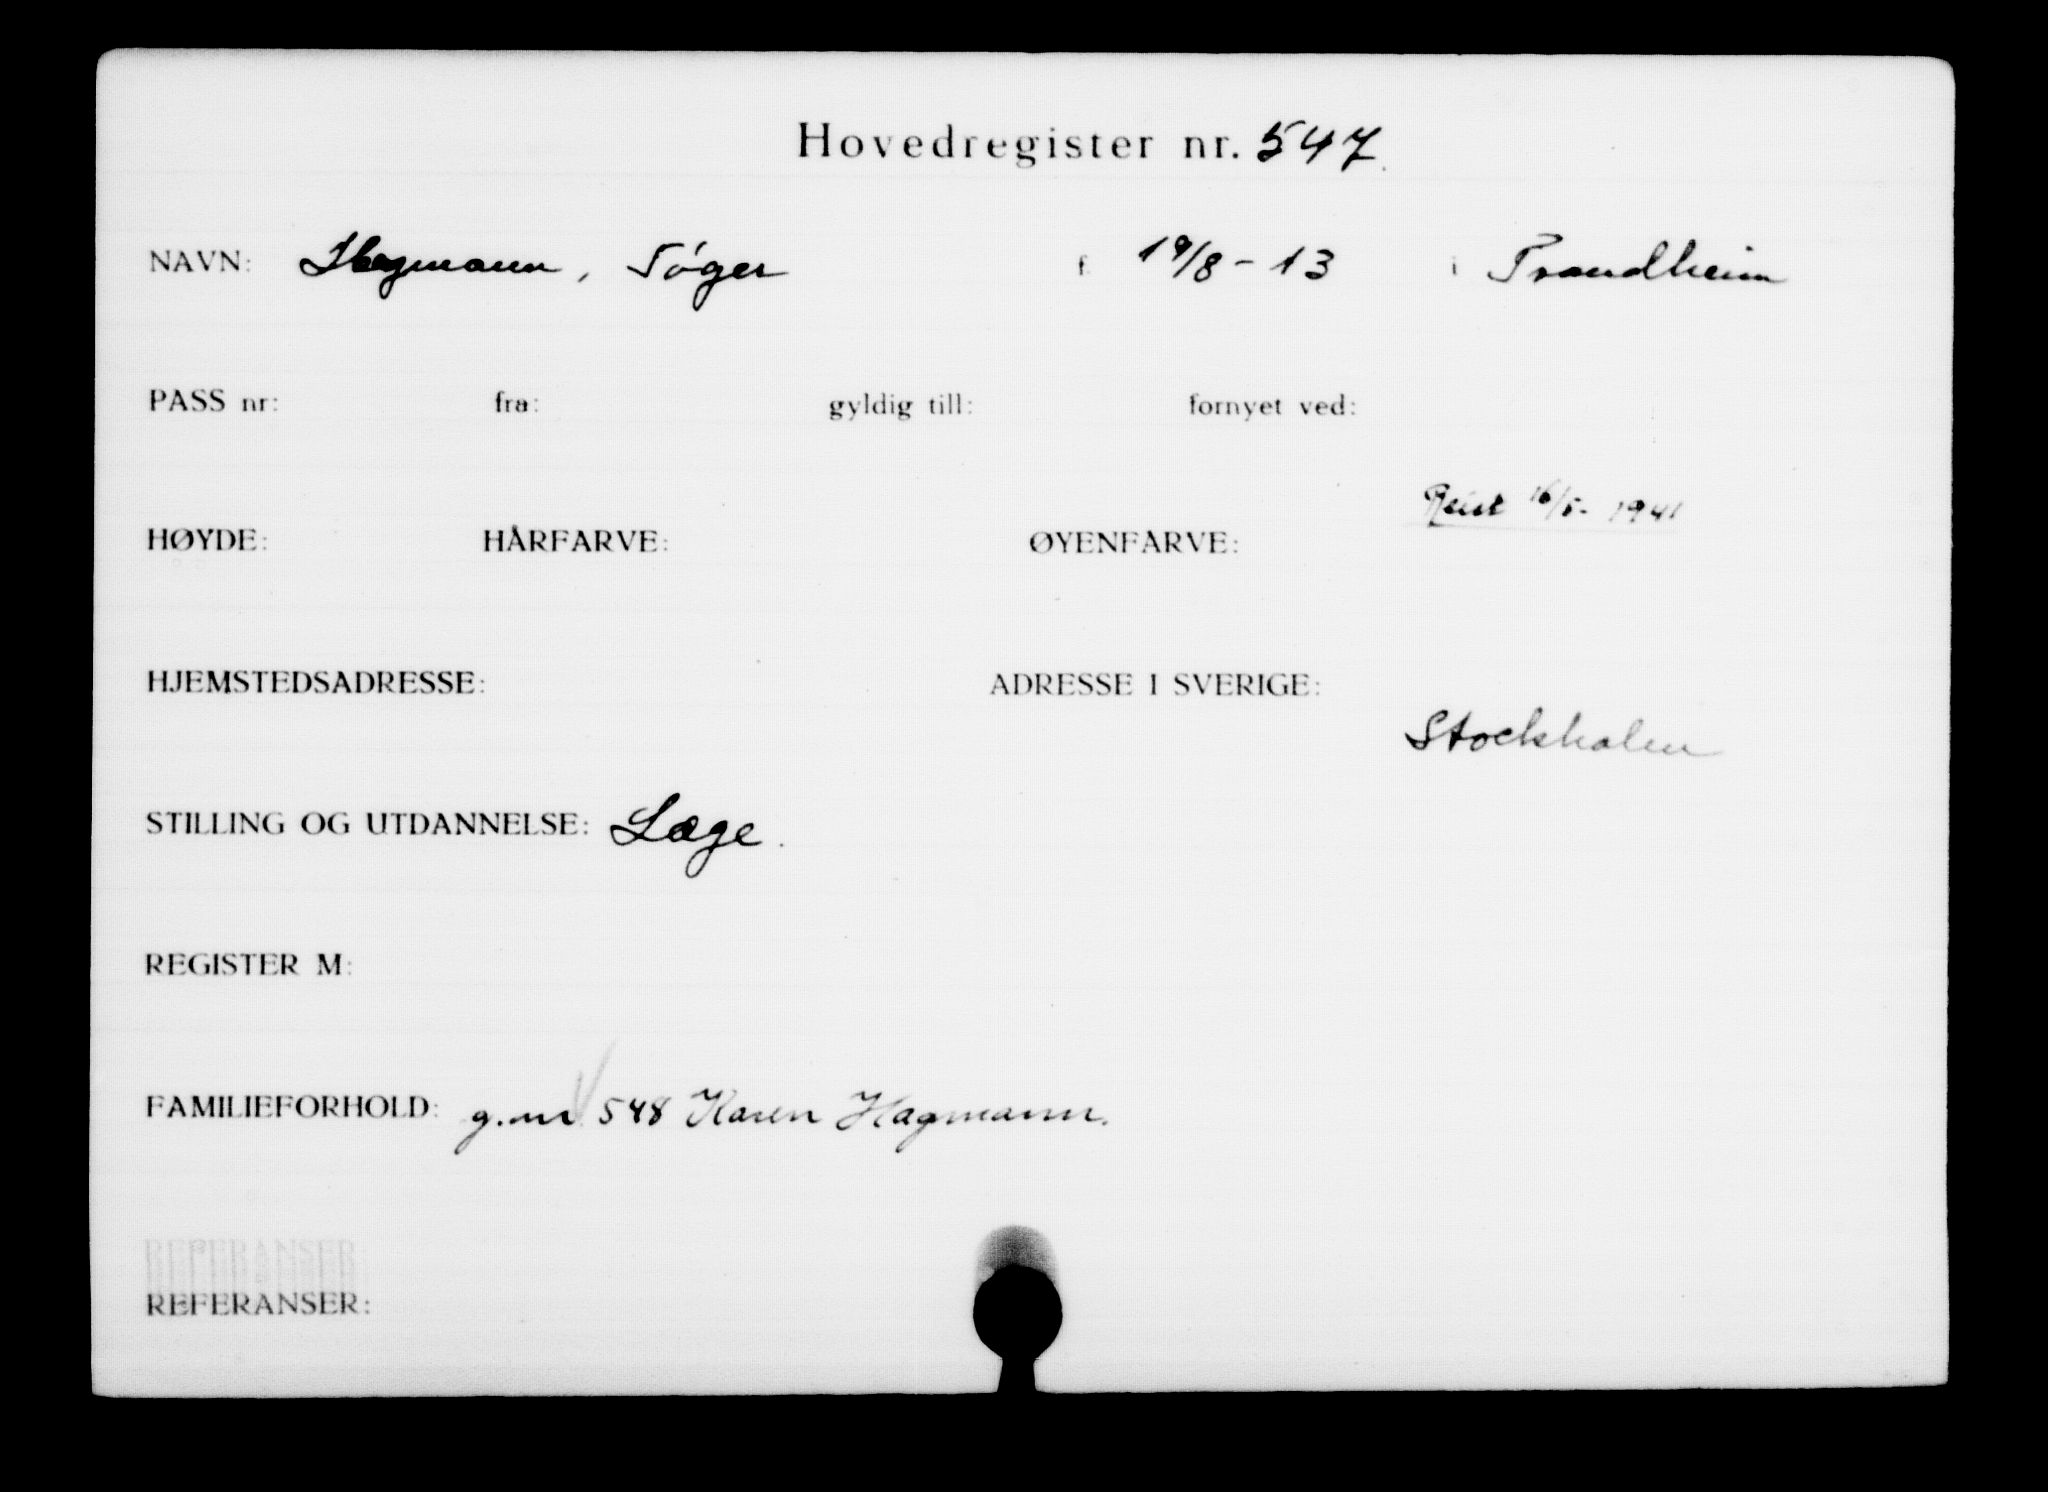 Hovedregister nr. 547.
NAVN: Hagmann, Tøger f. 19/8-13 i Trondheim
PASS nr: fra: gyldig till: fornyet ved:
Reist 16/5- 1941
HØYDE: HÅRFARVE: ØYENFARVE:
HJEMSTEDSADRESSE: ADRESSE I SVERIGE:
Stockholm
STILLING OG UTDANNELSE: Læge.
REGISTER M:
FAMILIEFORHOLD: g.m. 548 Karen Hagmann.
REFERANSER: